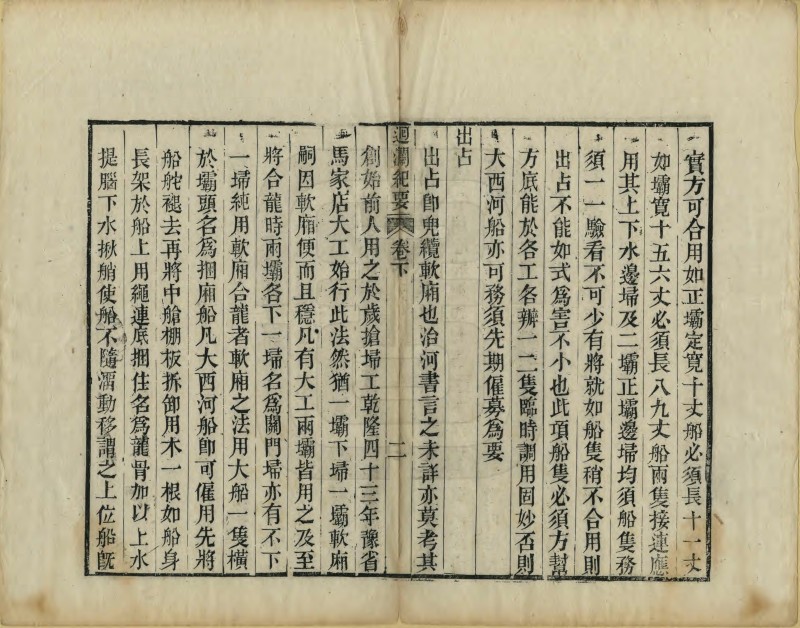 實方可合用如正壩定寬十丈船必須長十一丈
如壩寬十五六丈必須長八九丈船兩隻接連應
用其上下水邊埽及二壩正壩邊埽均須船隻務
須一一驗看不可少有將就如船隻稍不合用則
出占不能如式爲害不小也此項船隻必須方幫
方底能於各工各辦一二隻臨時調用固妙否則
大西河船亦可務須先期僱募爲要
出占
出占卽兜纜軟廂也治河書言之未詳亦莫考其
迴瀾紀要 卷下 二
創始前人用之於歲搶埽工乾隆四十三年豫省
馬家店大工始行此法然猶一壩下埽一壩軟廂
嗣因軟廂便而且穩凡有大工兩壩皆用之及至
將合龍時兩壩各下一埽名爲關門埽亦有不下
一埽純用軟廂合龍者軟廂之法用大船一隻橫
於壩頭名爲捆廂船凡大西河船卽可僱用先將
船舵褪去再將中艙棚板拆卸用木一根如船身
長架於船上用繩連底捆住名爲龍骨加以上水
提腦下水揪艄使船不隨溜動移謂之上位船旣